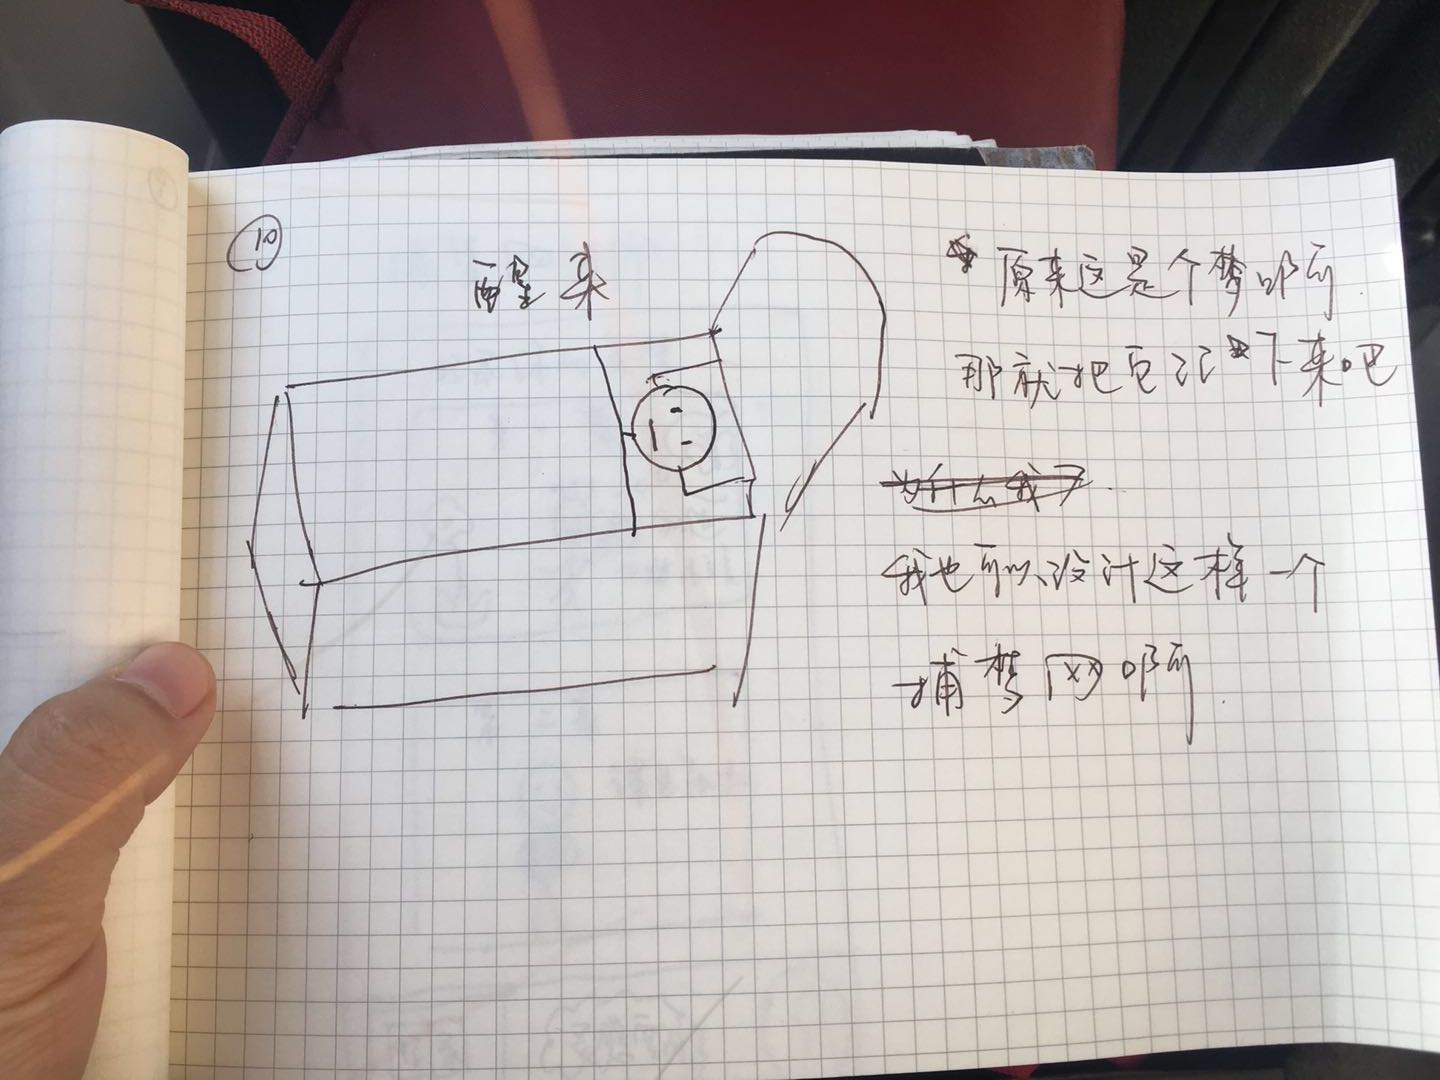 ⑩
醒来
原来这是个梦啊
那就把它记下来吧
为什么我了
我也可以设计这样一个
捕梦网啊